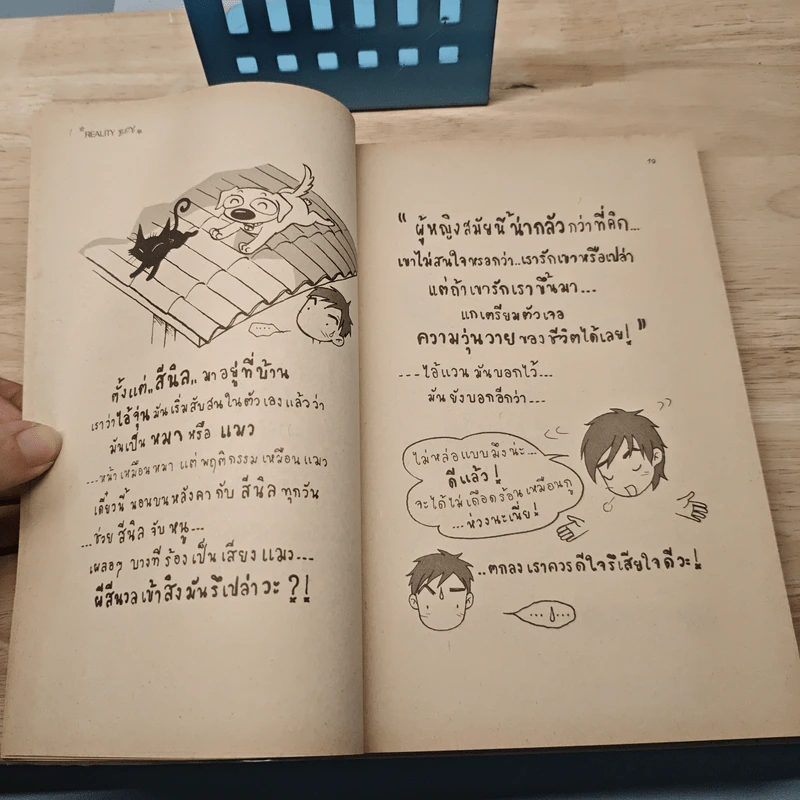 "REALITY
....
ตั้งแต่ "สีนิล" มาอยู่ที่บ้าน
เราว่าไอ้จุ่นมันเริ่มสับสนในตัวเองแล้วว่า
มันเป็น หมา หรือ แมว
...หน้าเหมือนหมา แต่ พฤติกรรม เหมือนแมว
เดี๋ยวนี้ นอนบนหลังคา กับ สีนิล ทุกวัน
...ช่วย สีนิล จับ หนู...
เผลอๆ บางทีร้องเป็นเสียงแมว...
ผีสีนวลเข้าสิงมันรึเปล่าวะ ?!
19
"ผู้หญิงสมัยนี้น่ากลัวกว่าที่คิด...
เขาไม่สนใจหรอกว่า..เรารักเขาหรือเปล่า
แต่ถ้าเขารักเราขึ้นมา...
แกเตรียมตัวเจอ
ความวุ่นวายของชีวิตได้เลย!"
...ไอ้แวน มันบอกไว้...
มันยังบอกอีกว่า....
ไม่หล่อแบบมึงน่ะ...
ดีแล้ว!
จะได้ไม่เดือดร้อนเหมือนกู
...ห่วงนะเนี่ย!
..ตกลงเราควรดีใจรึเสียใจดีวะ!